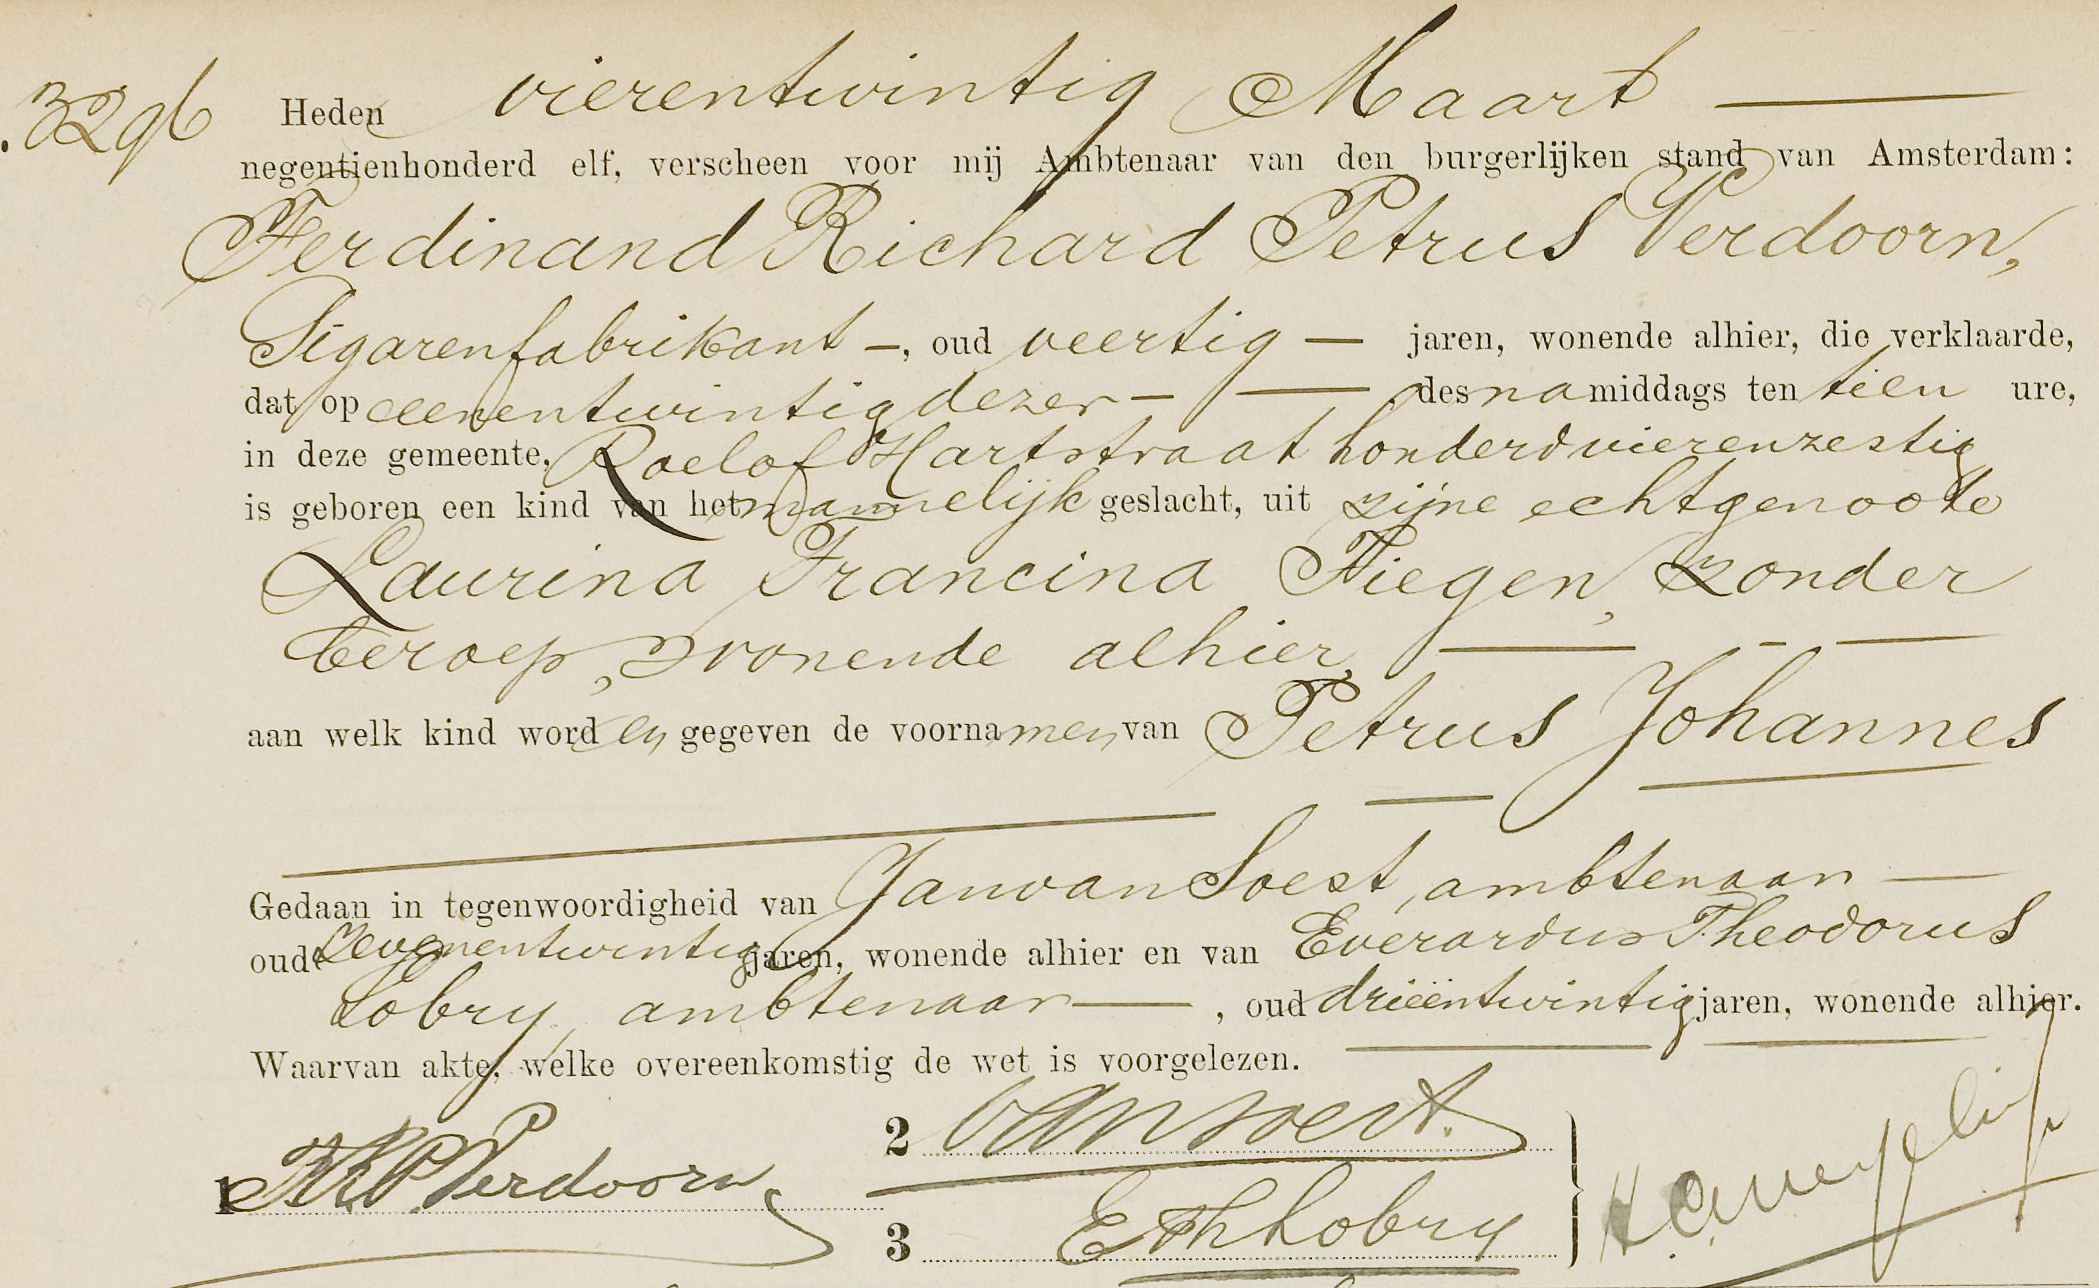 .3296 Heden vierentwintig Maart
negentienhonderd elf, verscheen voor mij Ambtenaar van den burgerlijken stand van Amsterdam:
Ferdinand Richard Petrus Verdoorn,
Sigarenfabrikant —, oud veertig — jaren, wonende alhier, die verklaarde,
dat op eenentwintig dezer — — des namiddags ten tien ure,
in deze gemeente, Roelof Hartstraat honderdvierenzestig
is geboren een kind van het mannelijk geslacht, uit zijne echtgenoote
Laurina Francina Fiegen, zonder
beroep, wonende alhier,
aan welk kind worden gegeven de voornamen van Petrus Johannes
Gedaan in tegenwoordigheid van Jan van Soest, ambtenaar —
oud zevenentwintig jaren, wonende alhier en van Everardus Theodorus
Lobry, ambtenaar —, oud drieëntwintig jaren, wonende alhier.
Waarvan akte, welke overeenkomstig de wet is voorgelezen.
1 F.R.P. Verdoorn
2 van Soest.
3 E Th Lobry